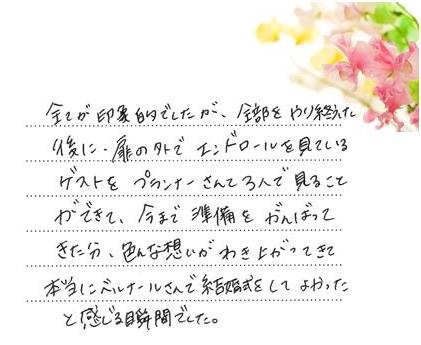 全てが印象的でしたが、全部をやり終えた
後に、扉の外でエンドロールを見ている
ゲストをプランナーさんと3人で見ること
ができて、今まで準備をがんばって
きた分、色んな想いがわき上がってきて
本当にベルナールさんで結婚式をしてよかった
と感じる瞬間でした。